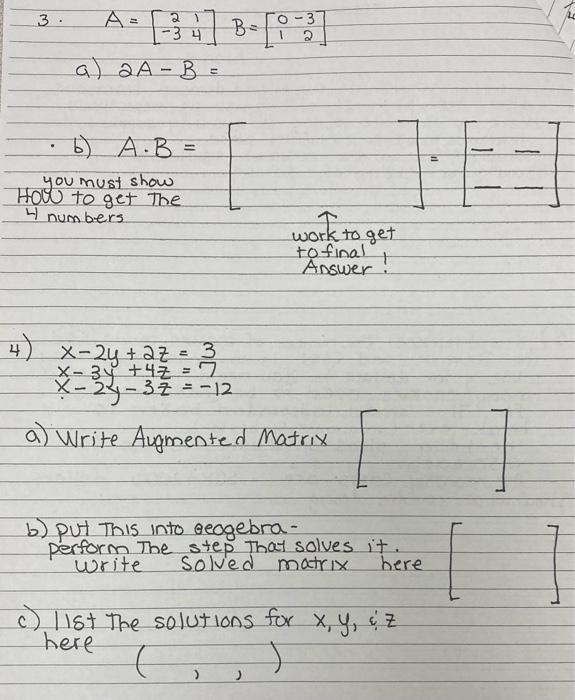 3. A = [ 2 1 B = [ 0 -3
-3 4 ] 1 2 ]
a) 2A - B =
b) A.B = [ ] = [ _ _ _ _ ]
you must show
HOW to get The
4 numbers
work to get
to final
Answer!
4) x - 2y + 2z = 3
x - 3y + 4z = 7
x - 2y - 3z = -12
a) Write Augmented Matrix [ ]
b) put This into geogebra -
perform The step That solves it.
write solved matrix here [ ]
c) list the solutions for x, y, & z
here
( , , )